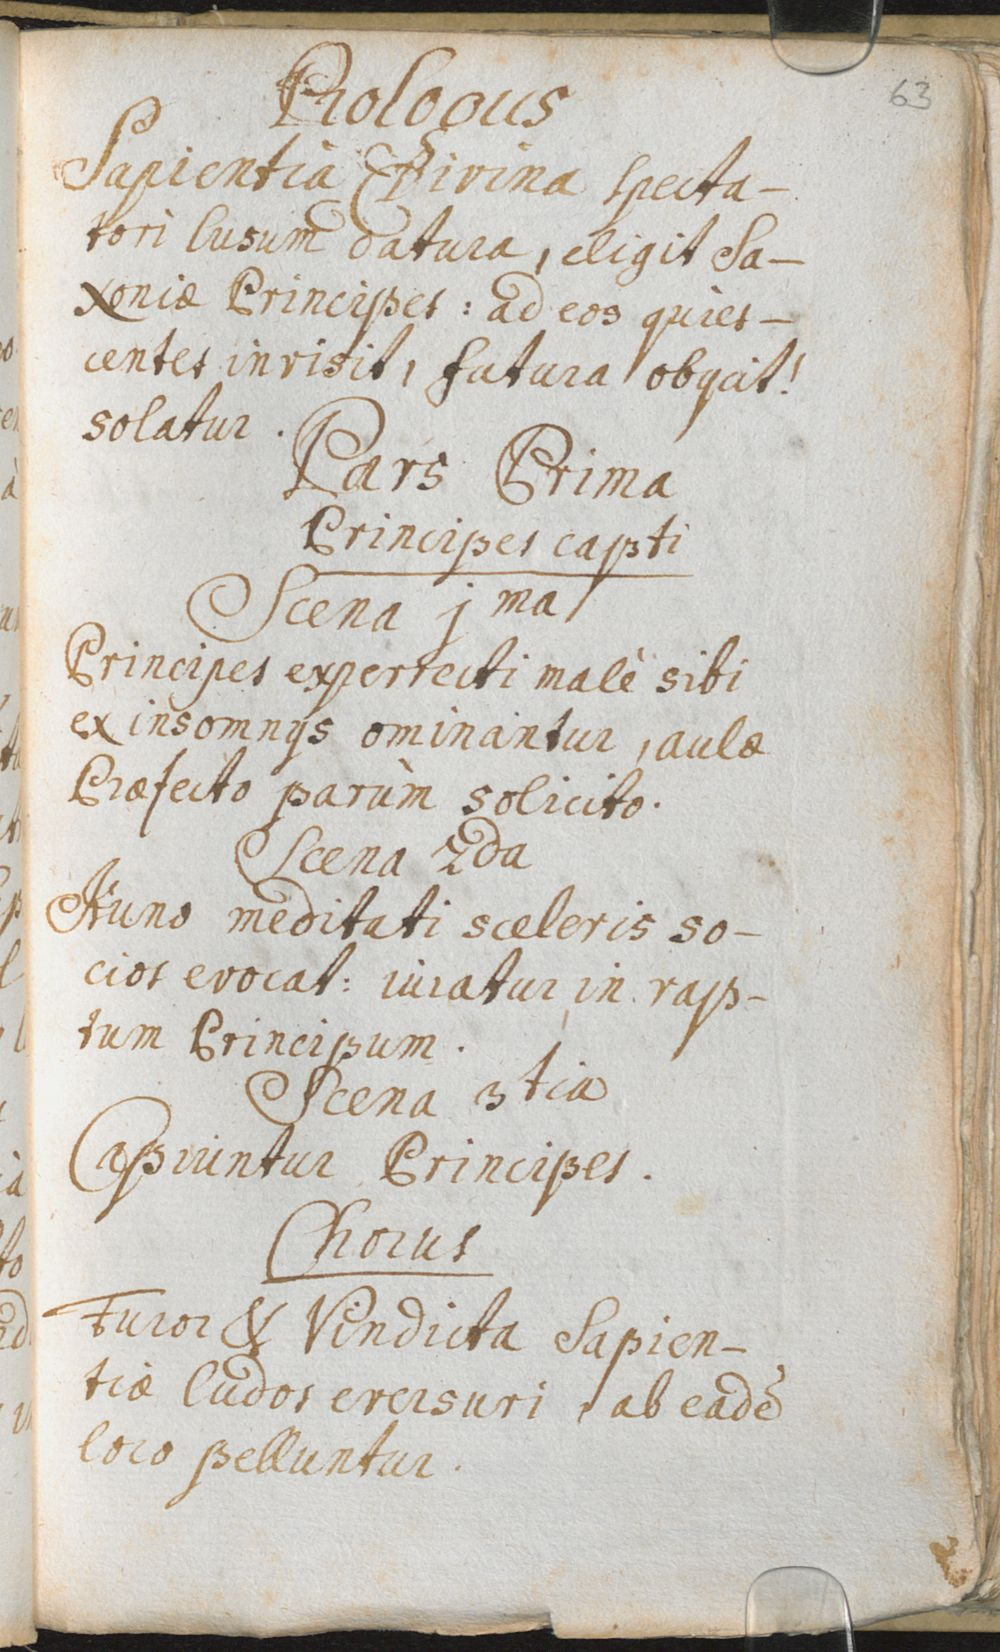 63
Prologus
Sapientia Divina specta-
tori lusum datura, eligit Sa-
xoniæ Principes: ad eos quies-
centes invisit, futura obijcit!
solatur.
Pars Prima
Principes capti
Scena j ma
Principes experrecti malè sibi
ex insomnijs ominantur, aulæ
Præfecto parùm solicito.
Scena 2da
Kuno meditati sceleris so-
cios evocat: iuratur in rap-
tum Principum.
Scena 3tia
Capiuntur Principes.
Chorus
Furor & Vindicta Sapien-
tiæ ludos eversuri, ab eadē
loco pelluntur.